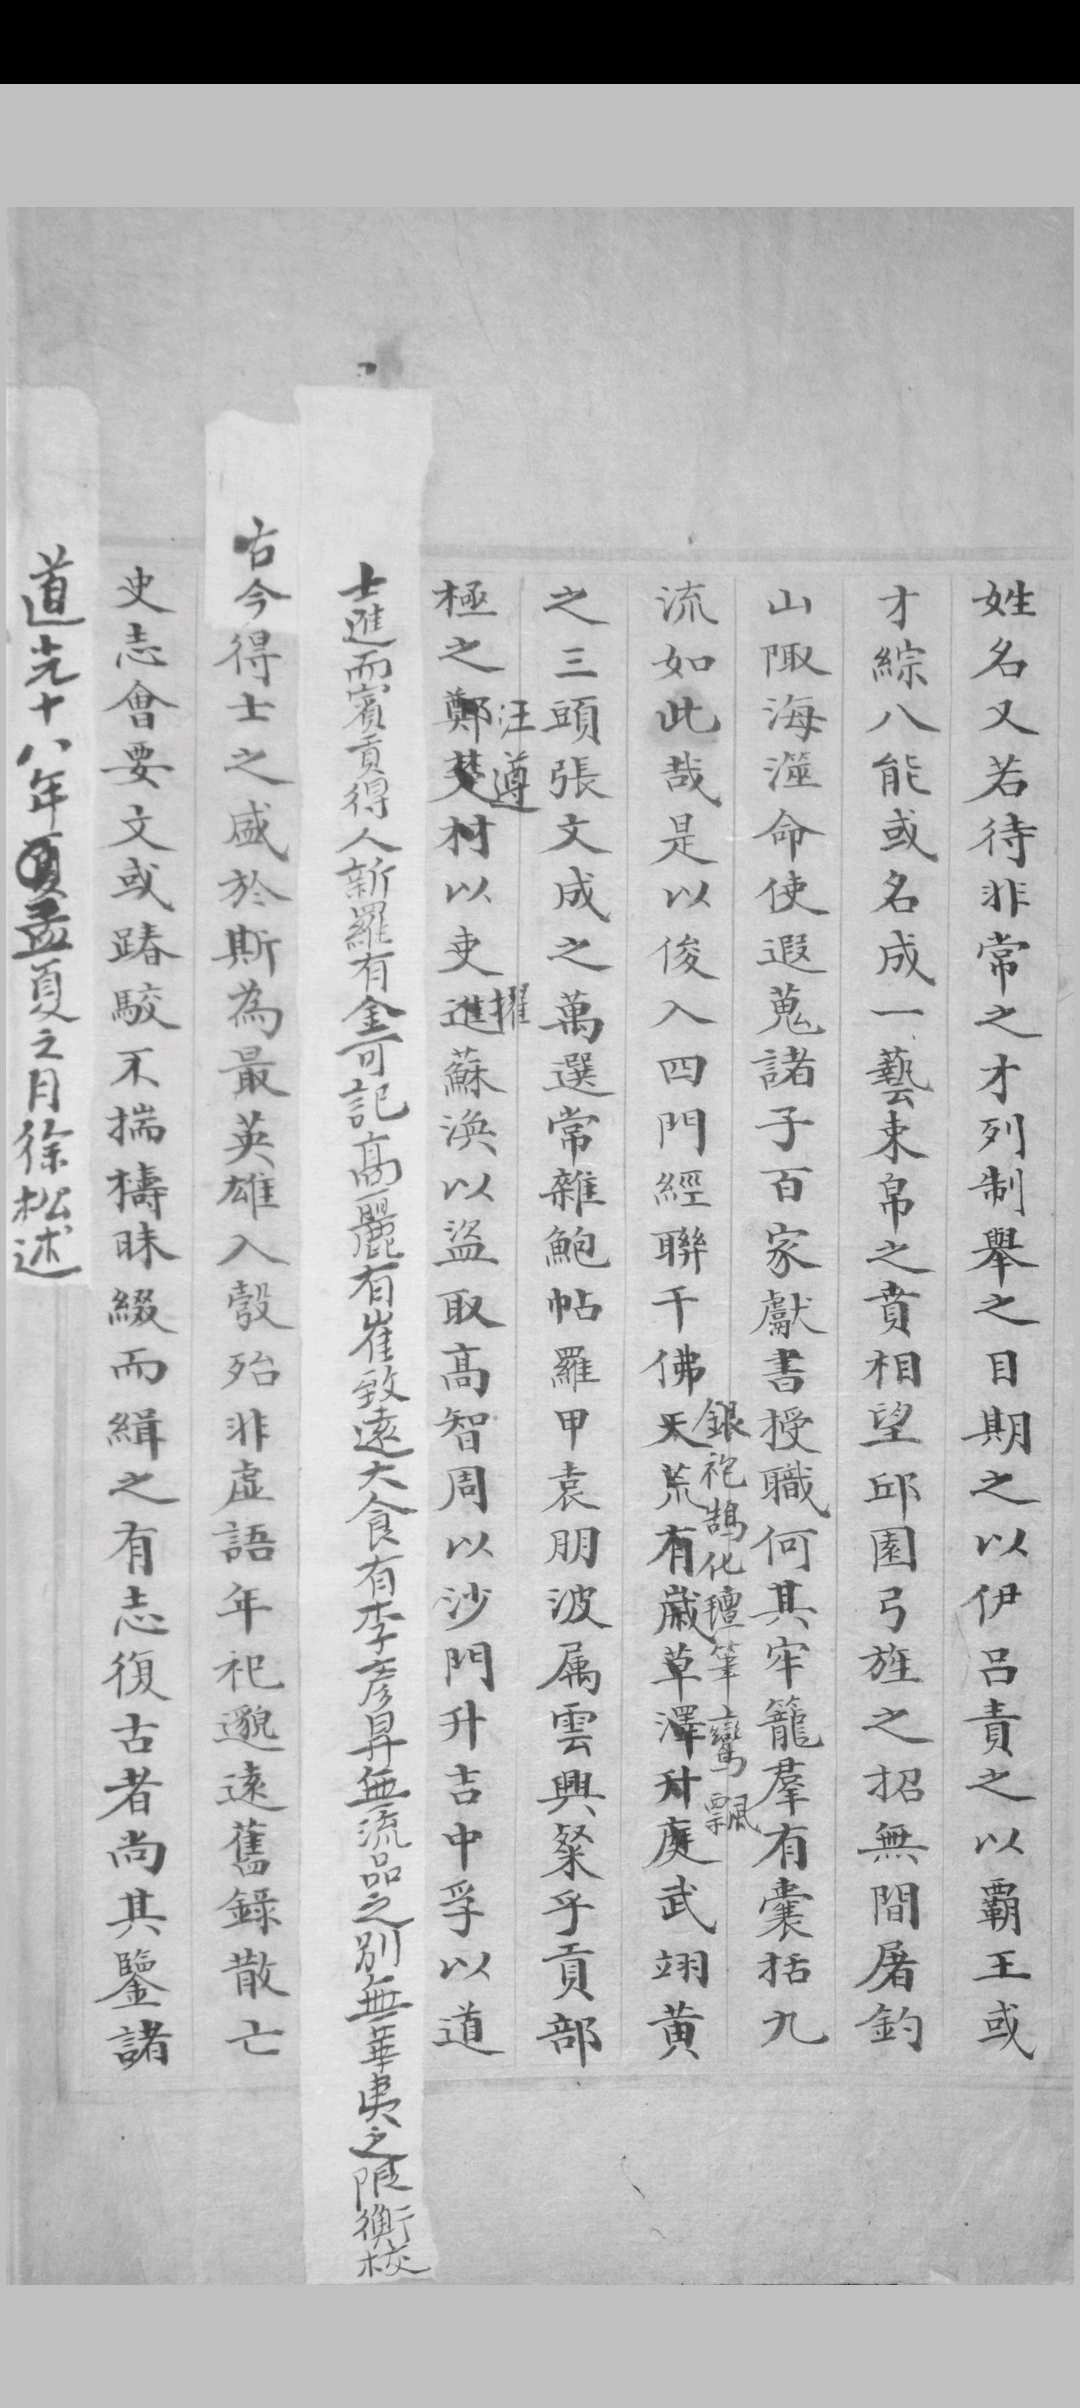 姓名又若待非常之才列制舉之目期之以伊呂責之以霸王或
才綜八能或名成一藝束帛之賁相望邱園弓旌之招無間屠釣
山陬海澨命使遐蒐諸子百家獻書授職何其牢籠羣有囊括九
銀袍鵠化氊筆鸞飄
流如此哉是以俊入四門經聯千佛天荒有歲草澤升庭武翊黃
之三頭張文成之萬選常雜鮑帖羅甲袁朋波属雲興粲乎貢部
汪遵擢
極之鄭材以吏進蘇渙以盜取高智周以沙門升吉中孚以道
士進而賓貢得人新羅有金可記高麗有崔致遠大食有李彥昇無流品之別無華夷之限衡校
古今得士之盛於斯為最英雄入彀殆非虛語年祀邈遠舊錄散亡
史志會要文或踳駮不揣檮昧綴而緝之有志復古者尚其鑒諸
道光十八年孟夏之月徐松述